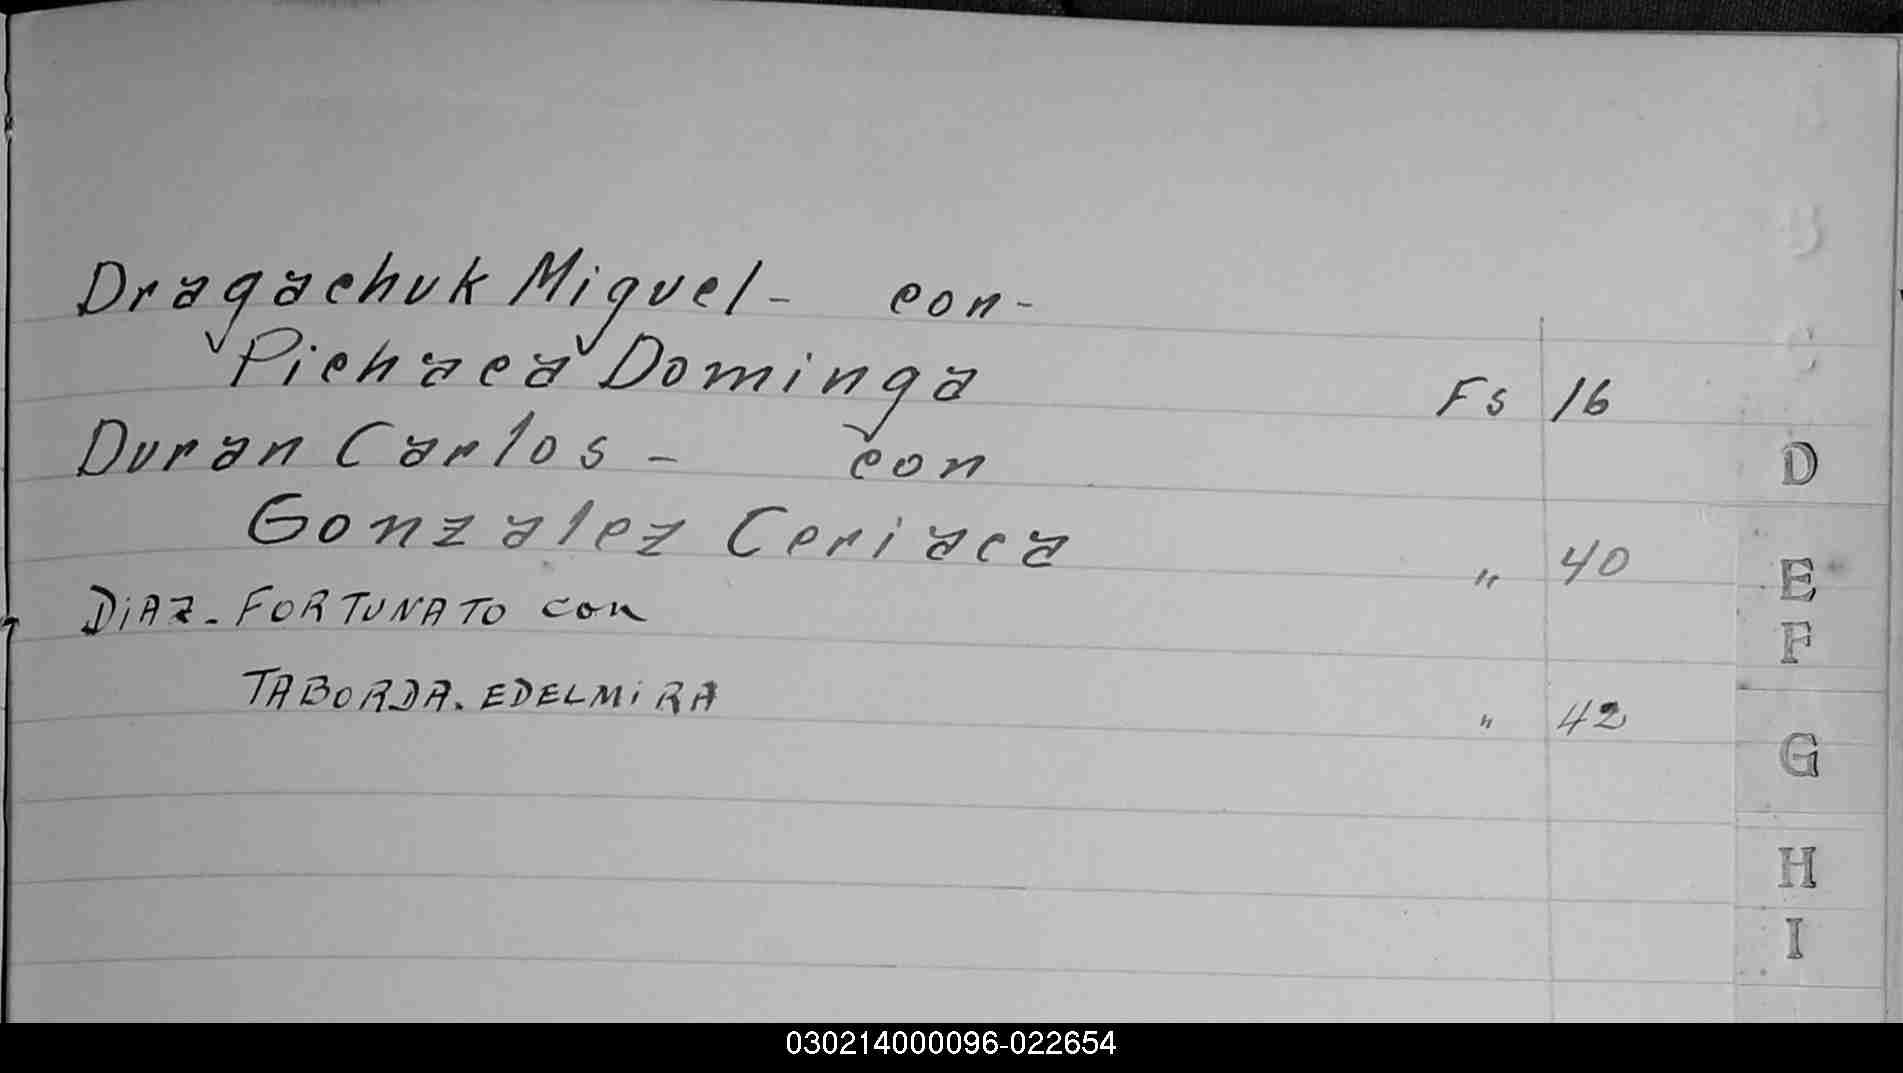 Dragachuk Miguel - con -
Pichaca Dominga Fs 16
Duran Carlos - con
Gonzalez Ceriaca " 40
DiAZ - FORTUNATO con
TABORDA. EDELMiRA " 42
D
E
F
G
H
I
030214000096-022654